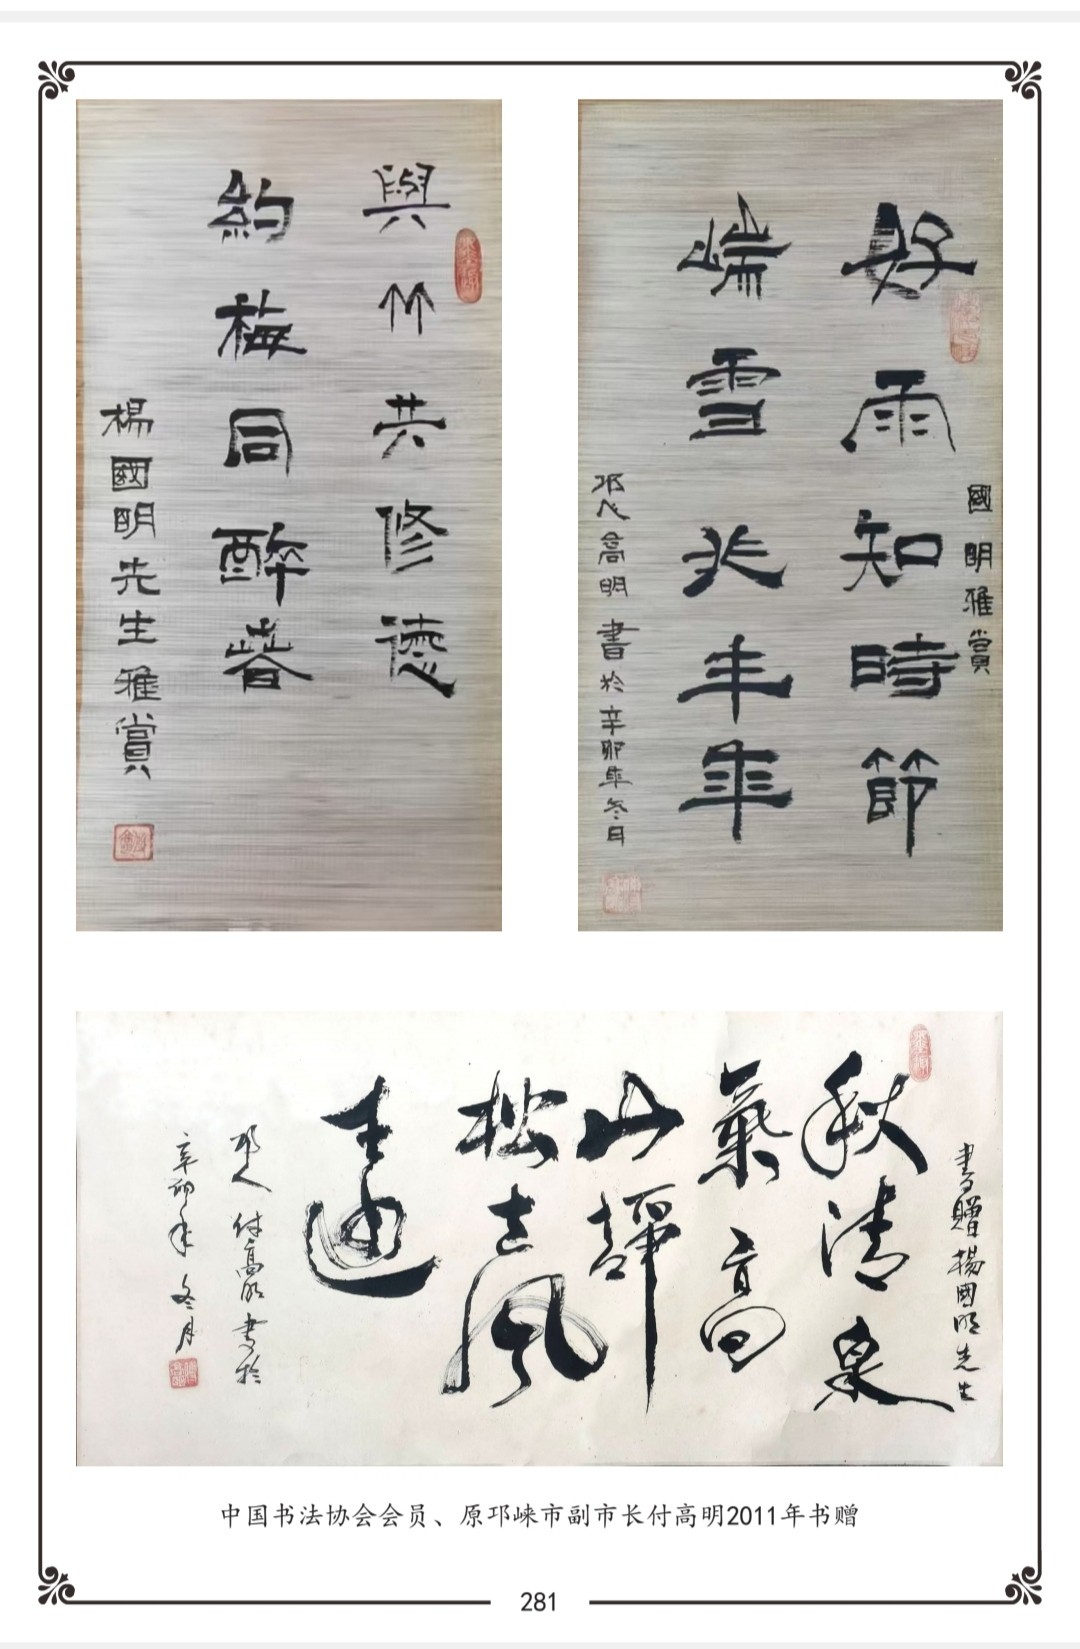 與竹共修德
約梅同醉春
楊國明先生雅賞
國明雅賞
好雨知時節
瑞雪兆丰年
邛人高明書於辛卯年冬日
書贈楊國明先生
秋清泉
氣香
山靜
松聲
遠
邛人付高明書於
辛卯年冬月
中国书法协会会员、原邛崃市副市长付高明2011年书赠
281